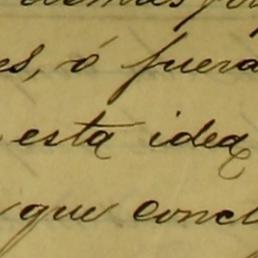 es, ó fuera
esta idea
que concl